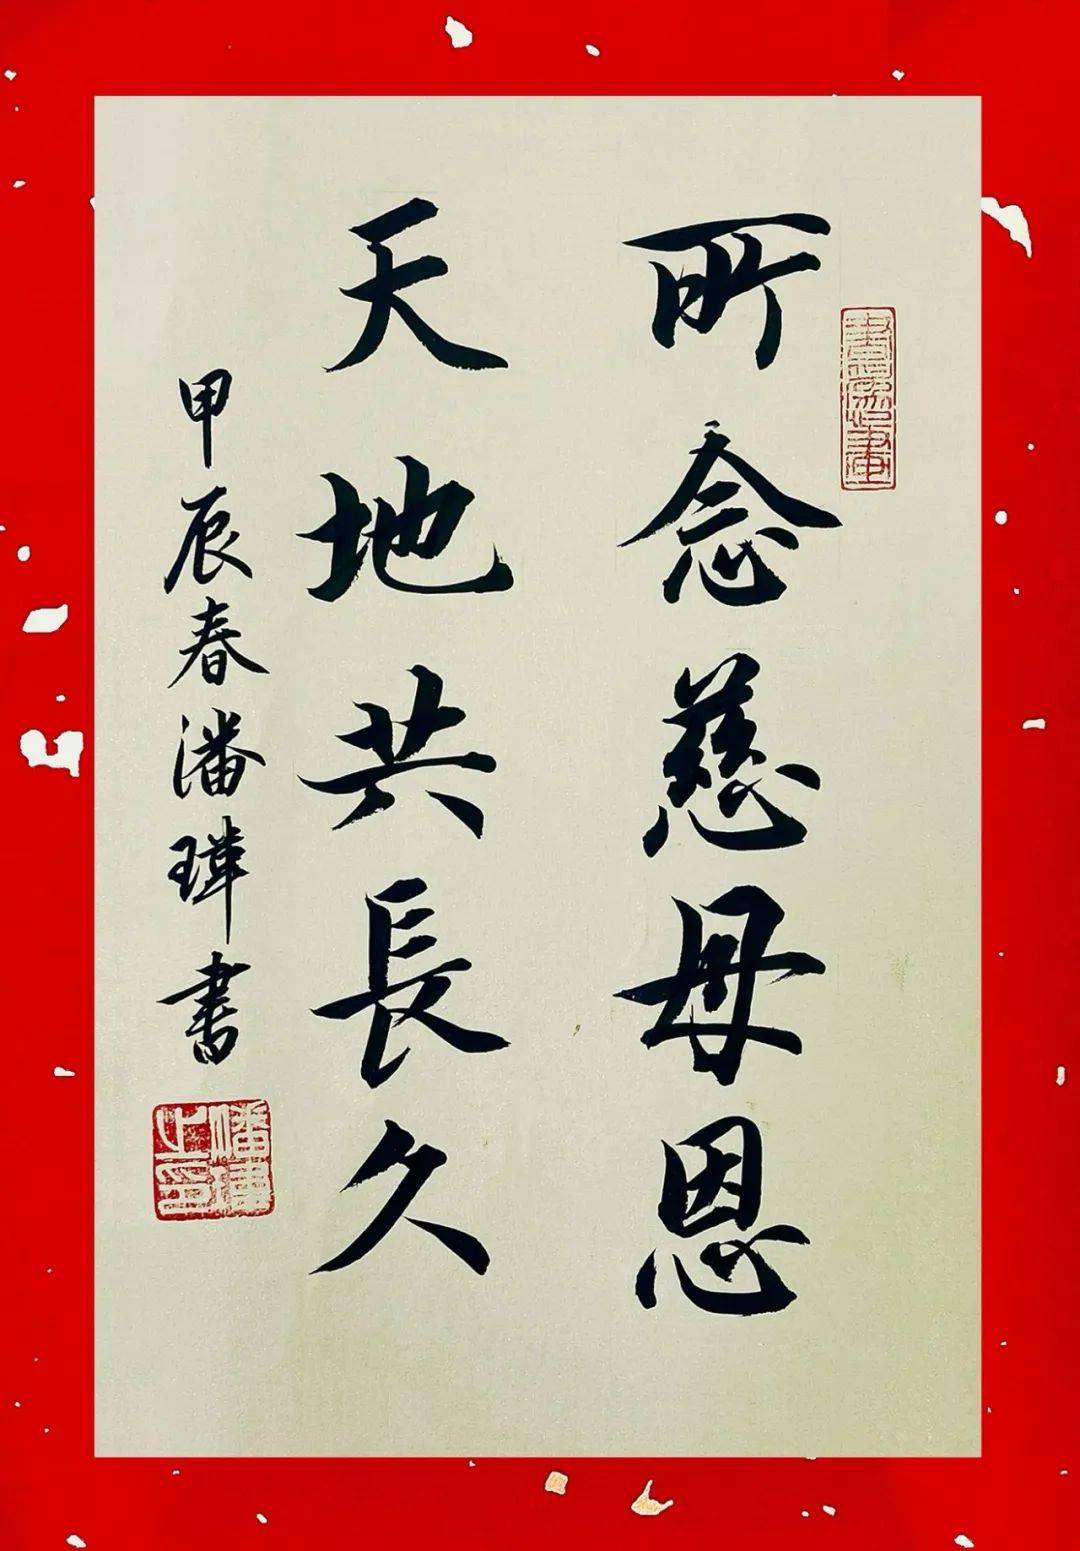 所念慈母恩
天地共長久
甲辰春潘瑋書